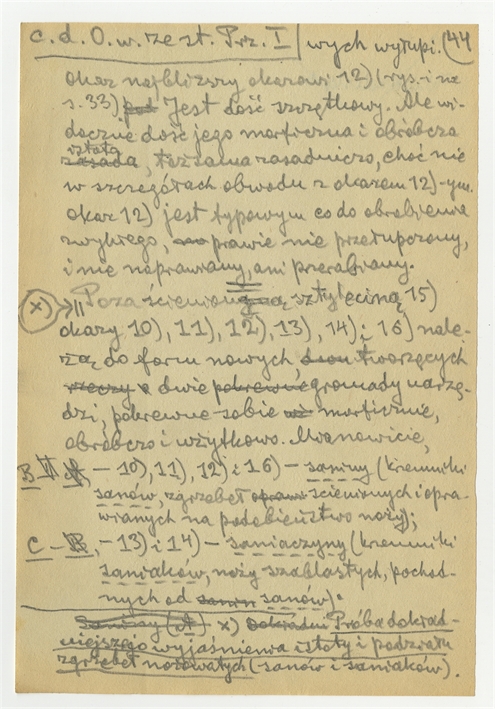 c. d. O. w. ze st. Prz. I wych wyłupi. (44
okaz najbliższy okazowi 12) (rys. i na
s. 33) jest dość szczątkowy. Ale wi-
docznie dość jego morficzna i obróbcza
istota zasada, ta sama zasadniczo, choć nie
w szczegółach obwodu z okazem 12)-ym.
okaz 12) jest typowym co do obrobienia
zwykłego, prawie nie przełupczony,
i nie naprawiany, ani przerabiany.
x) Poza ścienioną sztylęciną 15)
okazy 10), 11), 12), 13), 14) i 16) nale-
żą do form nowych, tworzących
rzeczy dwie pokrewne gromady narzę-
dzi, pokrewne sobie morficznie,
obróbczo i użytkowo. Mianowicie,
B II – 10), 11), 12) i 16) – saniny (krzemniki
sanów, zgrzebeł ścienionych i opra-
wianych na podobieństwo noży);
C – B, – 13) i 14) – saniaczyny (krzemniki
saniaków, noży szablastych, pochod-
nych od sanów).
x) Próba dokład-
niejszego wyjaśnienia istoty i podziału
zgrzebeł nożowatych (sanów i saniaków).